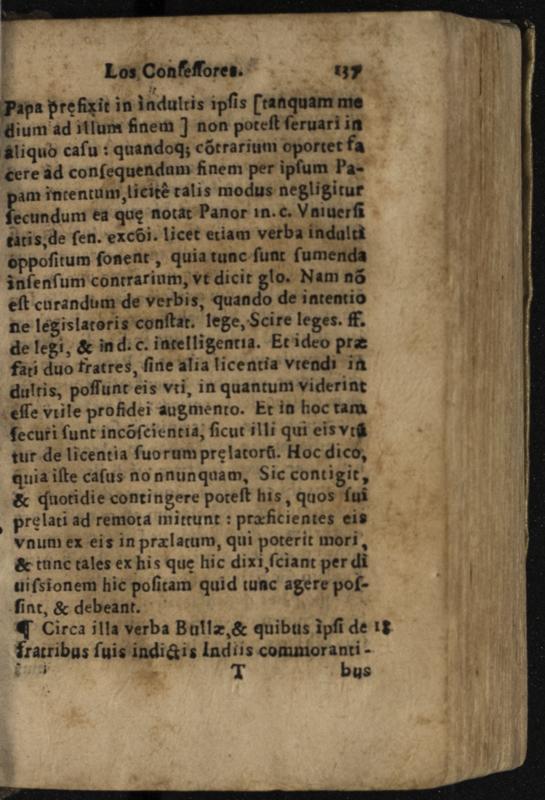 Los Confeſſores. 137
Papa pręfixit in indultis ipſis [tanquam me
dium ad illum finem ] non poteſt ſeruari in
aliquo caſu : quandoq; cõtrarium oportet fa
cere ad conſequendum finem per ipſum Pa-
pam intentum, licitè talis modus negligitur
ſecundum ea quę notat Panor in. c. Vniuerſi
tatis, de ſen. excõi. licet etiam verba indulti
oppoſitum ſonent , quia tunc ſunt ſumenda
inſenſum contrarium, vt dicit glo. Nam nõ
eſt curandum de verbis, quando de intentio
ne legislatoris conſtat. lege, Scire leges. ff.
de legi, & in d. c. intelligentia. Et ideo præ
fati duo fratres, ſine alia licentia vtendi in
dultis, poſſunt eis vti, in quantum viderint
eſſe vtile profidei augmento. Et in hoc tam
ſecuri ſunt incõſcientia, ſicut illi qui eis vtũ
tur de licentia ſuorum pręlatorũ. Hoc dico,
quia iſte caſus nonnunquam, Sic contigit,
& quotidie contingere poteſt his , quos ſui
pręlati ad remota mittunt : præficientes eis
vnum ex eis in prælatum, qui poterit mori ,
& tunc tales ex his quę hic dixi, ſciant per di
uiſsionem hic poſitam quid tunc agere poſ-
ſint, & debeant.
¶ Circa illa verba Bullæ, & quibus ipſi de 18
fratribus ſuis indictis Indiis commoranti -
T bus